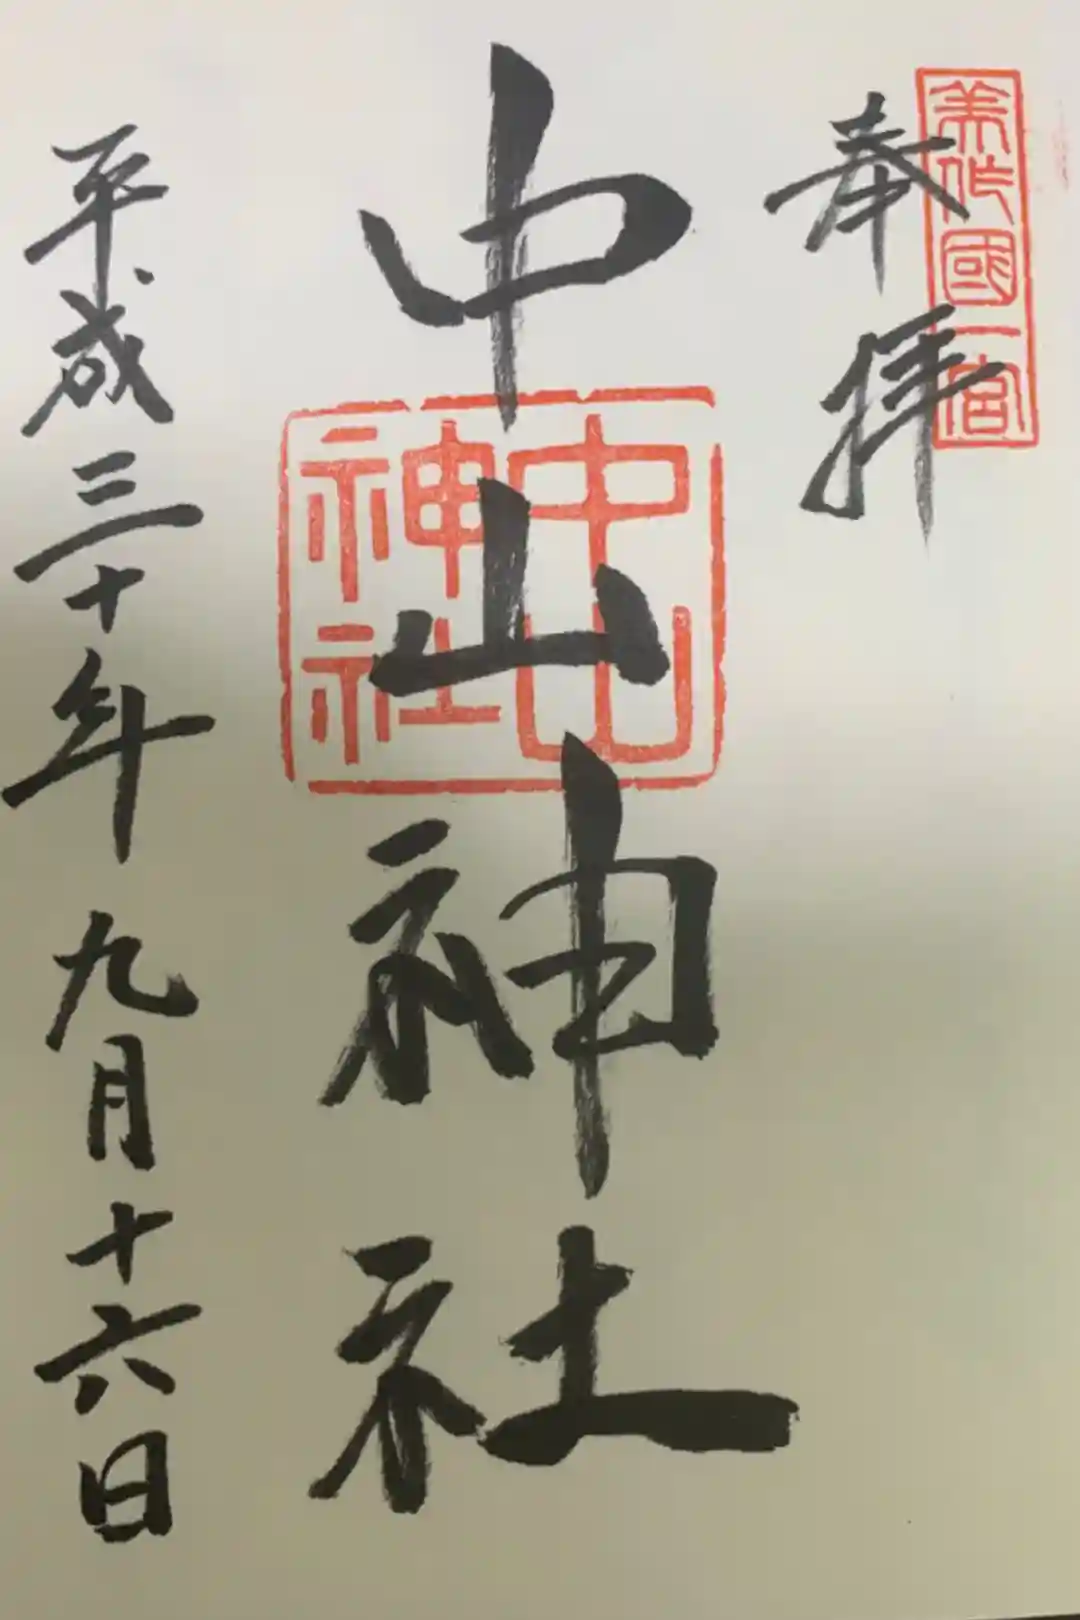 美作國一宮
奉拝
中山神社
中山神社
平成三十年九月十六日